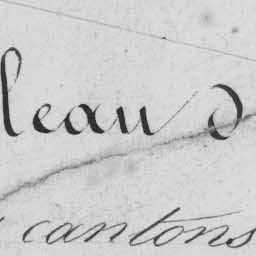 leau d
cantons